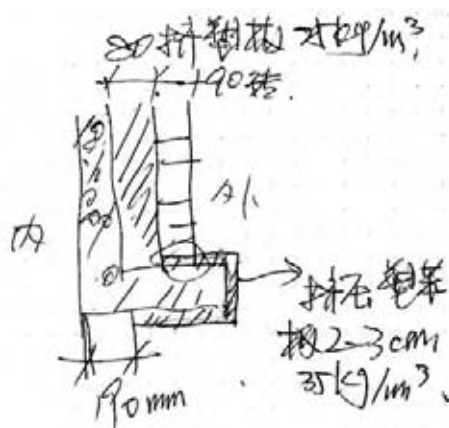 80 挤塑板 25kg/m³
90砖.
内
外
挤塑苯
板2-3cm
35kg/m³.
190mm